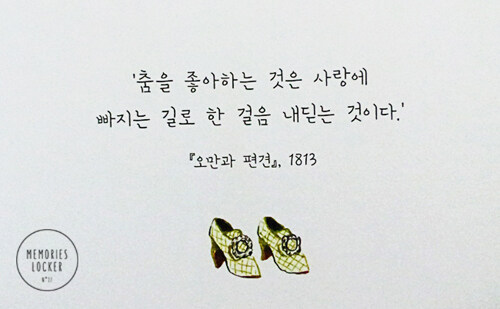 '춤을 좋아하는 것은 사랑에
빠지는 길로 한 걸음 내딛는 것이다.'
『오만과 편견』, 1813
MEMORIES
LOCKER
N°11